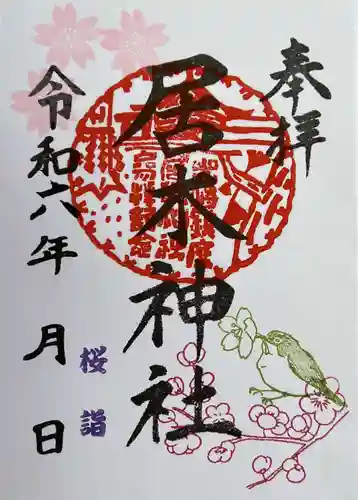 奉拝
居木神社
令和六年 月 日
桜詣